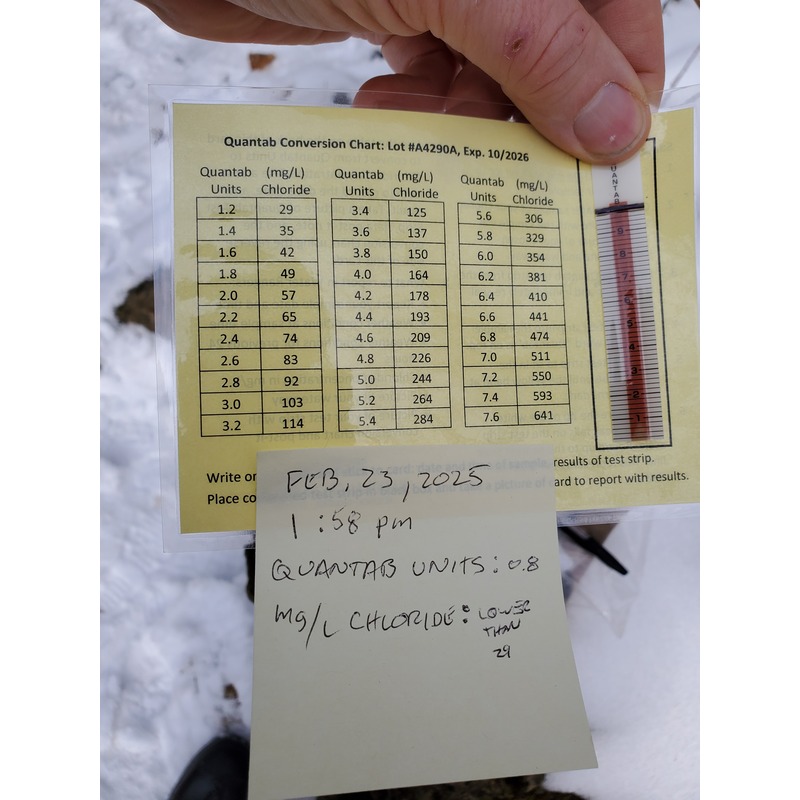 Quantab Conversion Chart: Lot #A4290A, Exp. 10/2026
Quantab Units (mg/L) Chloride Quantab Units (mg/L) Chloride Quantab Units (mg/L) Chloride
1.2 29 3.4 125 5.6 306
1.4 35 3.6 137 5.8 329
1.6 42 3.8 150 6.0 354
1.8 49 4.0 164 6.2 381
2.0 57 4.2 178 6.4 410
2.2 65 4.4 193 6.6 441
2.4 74 4.6 209 6.8 474
2.6 83 4.8 226 7.0 511
2.8 92 5.0 244 7.2 550
3.0 103 5.2 264 7.4 593
3.2 114 5.4 284 7.6 641
QUANTAB
9
8
7
6
5
4
3
2
1
Write results of test strip.
Place picture of card to report with results.
FEB, 23, 2025
1:58 pm
QUANTAB UNITS: 0.8
mg/L CHLORIDE: LOWER
THAN
29